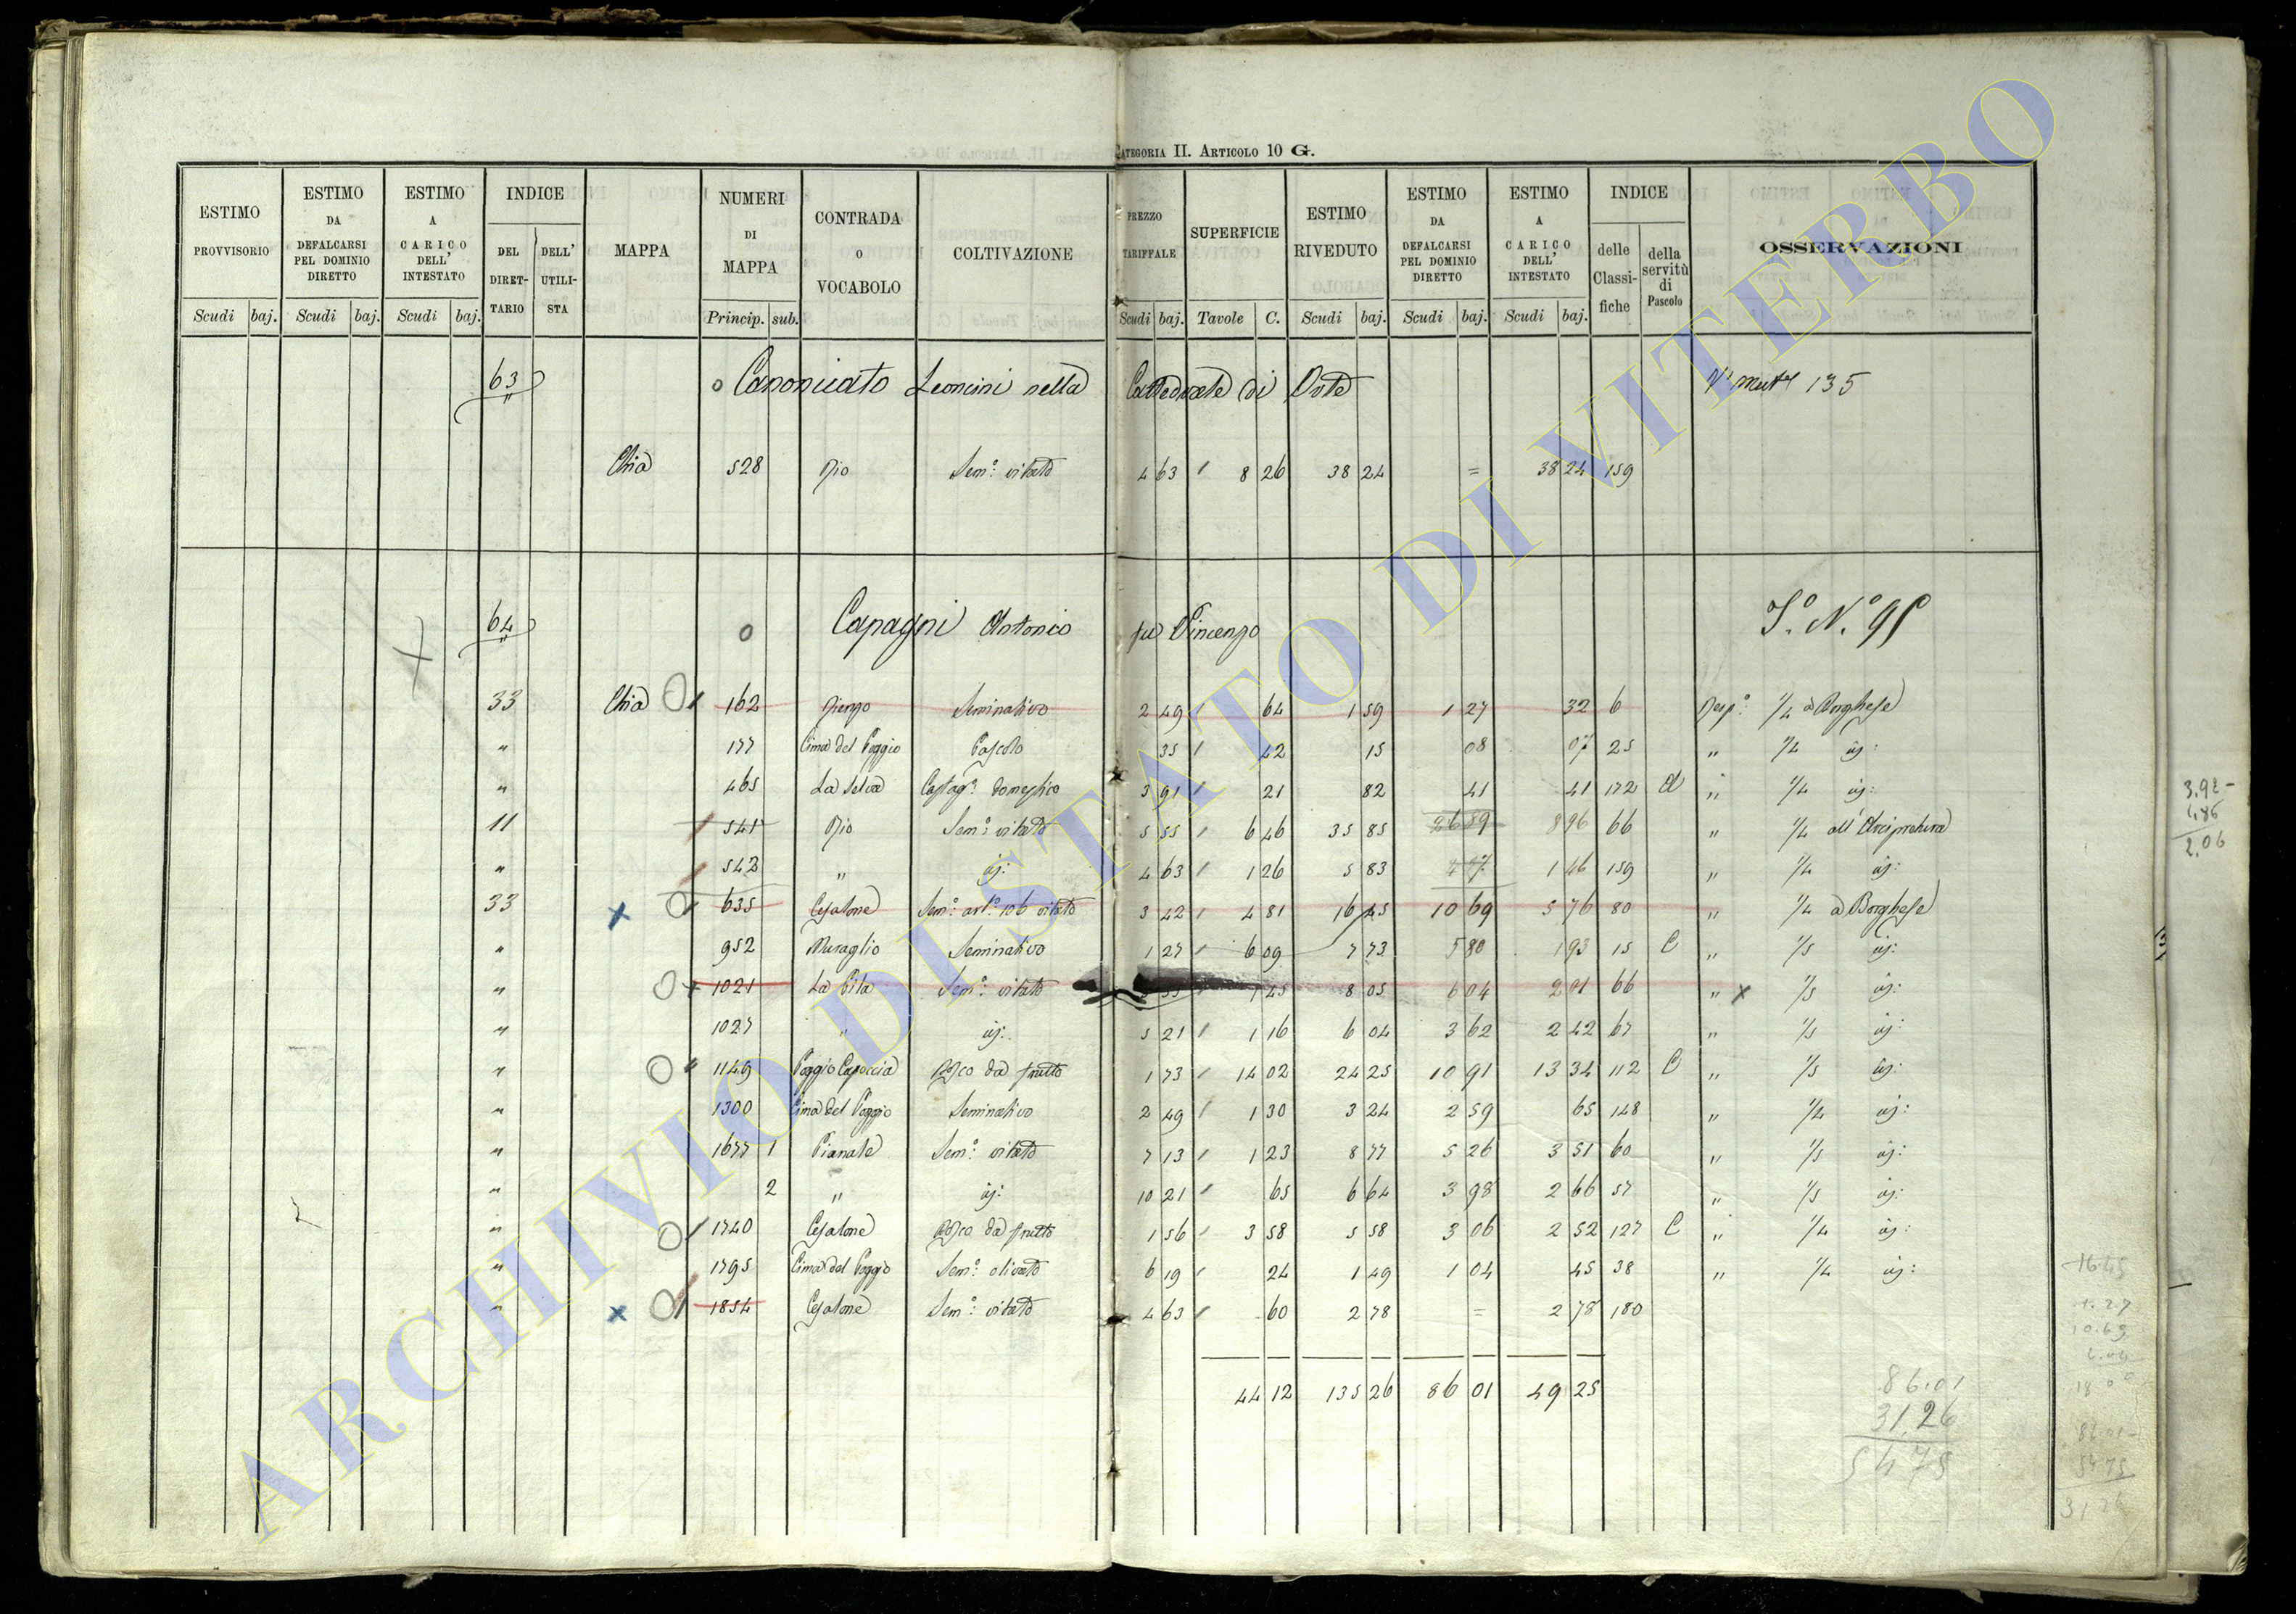 CATEGORIA II. ARTICOLO 10 G.
ESTIMO PROVVISORIO | ESTIMO DA DEFALCARSI PEL DOMINIO DIRETTO | ESTIMO A CARICO DELL' INTESTATO | INDICE | MAPPA | NUMERI DI MAPPA | CONTRADA o VOCABOLO | COLTIVAZIONE | PREZZO TARIFFALE | SUPERFICIE | ESTIMO RIVEDUTO | ESTIMO DA DEFALCARSI PEL DOMINIO DIRETTO | ESTIMO A CARICO DELL' INTESTATO | INDICE | OSSERVAZIONI
DEL DIRETTARIO | DELL' UTILISTA | delle Classifiche | della servitù di Pascolo
Scudi | baj. | Scudi | baj. | Scudi | baj. | Princip. | sub. | Scudi | baj. | Tavole | C. | Scudi | baj. | Scudi | baj. | Scudi | baj.
63 Canonicato Leoncini nella Cattedrale di Orte 135
Chia 528 Rio Sem.° vitato 4 63 8 26 38 24 = 38 24 159
64 Capagni Antonio fu Vincenzo S.° N.° 91
33 Chia 162 Seminativo 2 49 64 1 59 1 27 32 6 Resp.° 1/4 a Borghese
" 177 Cima del Poggio Pascolo 35 42 15 08 07 25 " 1/4 id:
" 465 La Selva Castag.° domestico 3 91 21 82 41 41 172 A " 1/4 id:
11 541 Rio Sem.° vitato 5 55 6 46 35 85 26 59 8 96 66 " 1/4 all'Arcipretura
" 542 " id: 4 63 1 26 5 83 1 46 159 " 1/4 id:
33 635 Cesalone Sem.° art.° 106 vitato 3 42 4 81 16 45 10 69 5 76 80 " 1/4 a Borghese
" 952 Muraglio Seminativo 1 27 6 09 7 73 5 80 1 93 15 C " 1/5 id:
" 1021 La Pila Sem.° vitato 55 1 45 8 05 6 04 2 01 66 " x 1/5 id:
" 1027 " id: 5 21 1 16 6 04 3 62 2 42 67 " 1/5 id:
" 1149 Poggio Capoccia Bosco da frutto 1 73 14 02 24 25 10 91 13 34 112 C " 1/5 id:
" 1300 Cima del Poggio Seminativo 2 49 1 30 3 24 2 59 65 148 " 1/4 id:
" 1677 1 Pianale Sem.° vitato 7 13 1 23 8 77 5 26 3 51 60 " 1/5 id:
" 2 " id: 10 21 65 6 64 3 98 2 66 57 " 1/5 id:
" 1740 Cesalone Bosco da frutto 1 56 3 58 5 58 3 06 2 52 127 C " 1/4 id:
" 1795 Cima del Poggio Sem.° olivato 6 19 24 1 49 1 04 45 38 " 1/4 id:
" 1854 Cesalone Sem.° vitato 4 63 60 2 78 = 2 78 180
44 12 135 26 86 01 49 25
86.01
31.26
54 75
16.45
1.27
10.69
6.04
18 00
86 01
54 75
31 26
3.92
1.86
2.06
ARCHIVIO DI STATO DI VITERBO